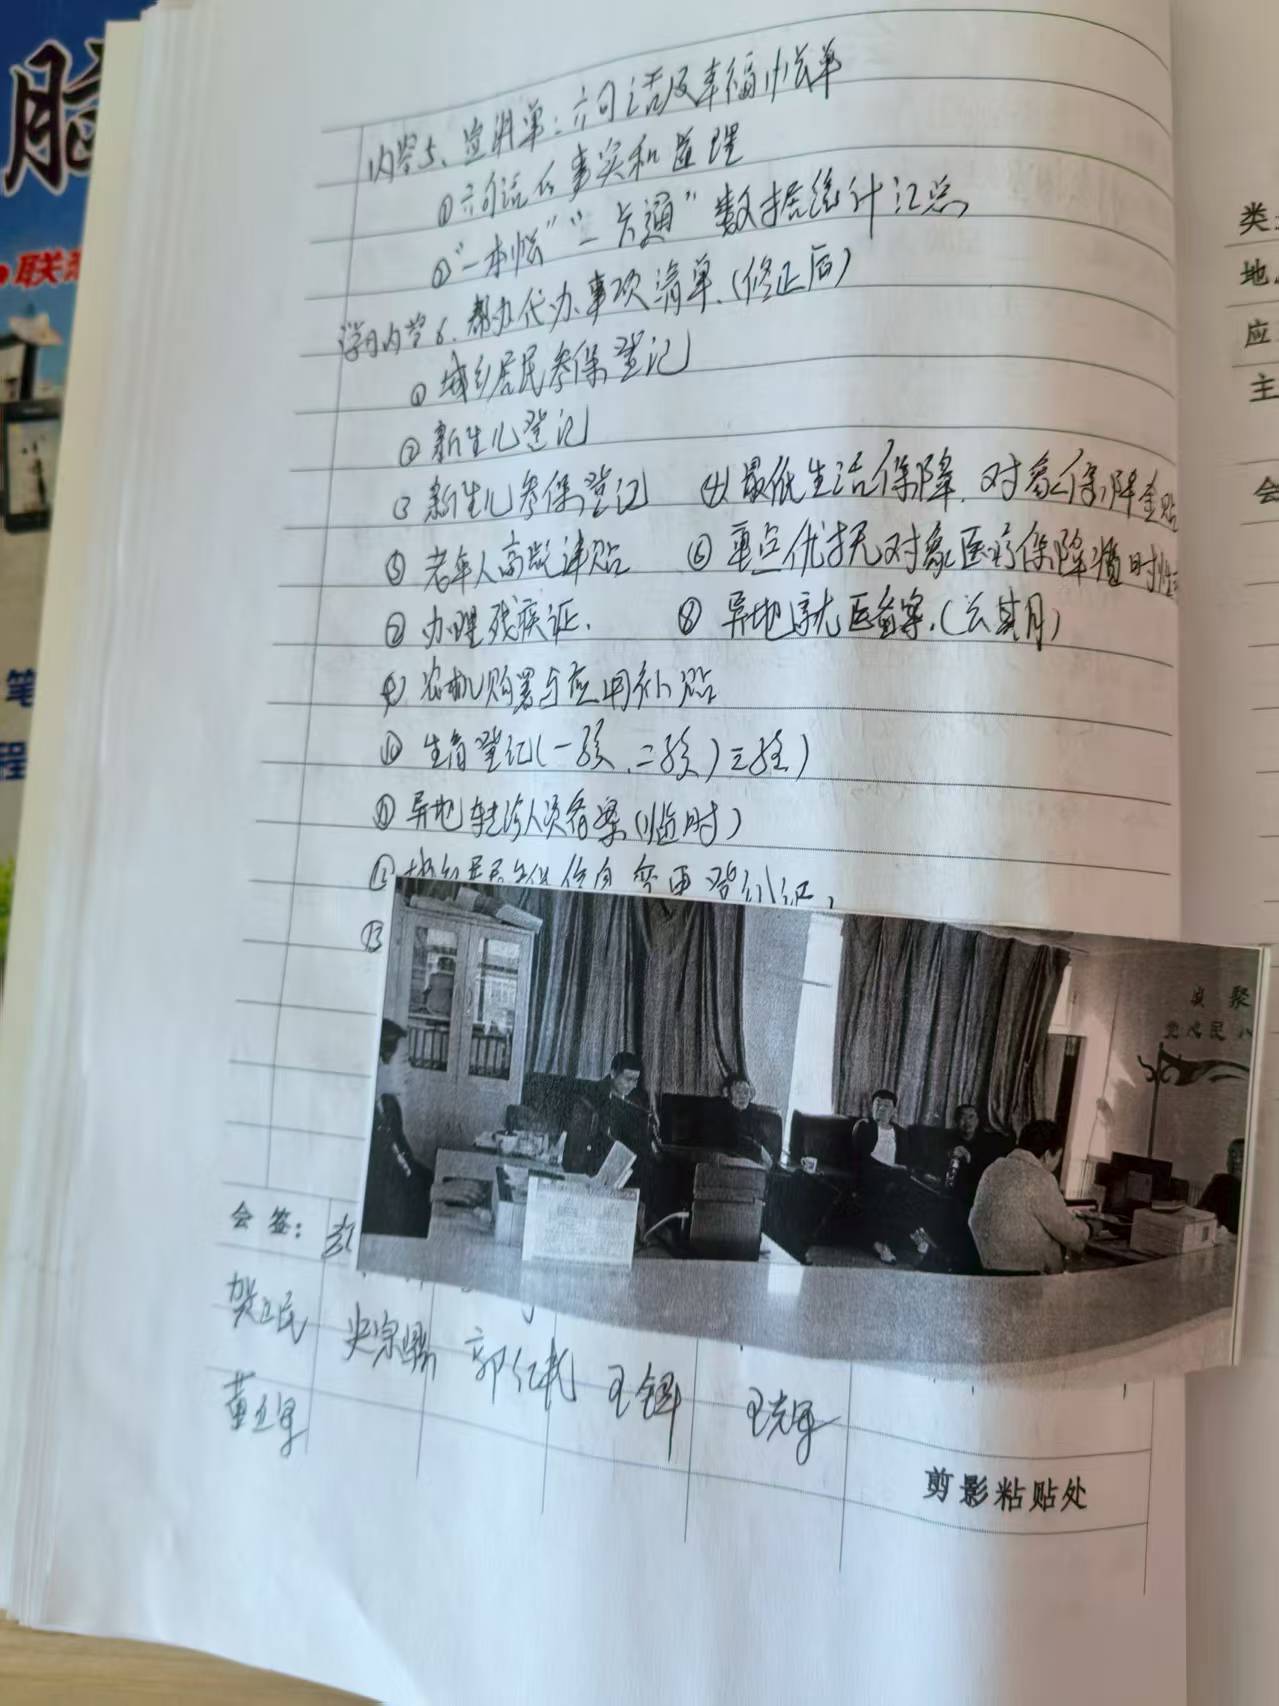 脑
联
笔
程
内容5、宣讲单：六句话及幸福小账单
①六句话的事实和道理
②“一本账”“一卡通”数据统计汇总
学习内容6、帮办代办事项清单.(修正后)
①城乡居民参保登记
②新生儿登记
③新生儿参保登记 ④最低生活保障.对象保障金
⑤老年人高龄津贴 ⑥重点优抚对象医疗保障
⑦办理残疾证. ⑧异地就医备案.
农机购置与应用补贴
⑩生育登记(一孩.二孩)三孩)
⑪异地转诊人员备案(临时)
⑫变更登记
⑬
聚
党 民 心
会签：
贺立民 史宗 郭仁 王 王克军
董
剪影粘贴处
类
地
应
主
会